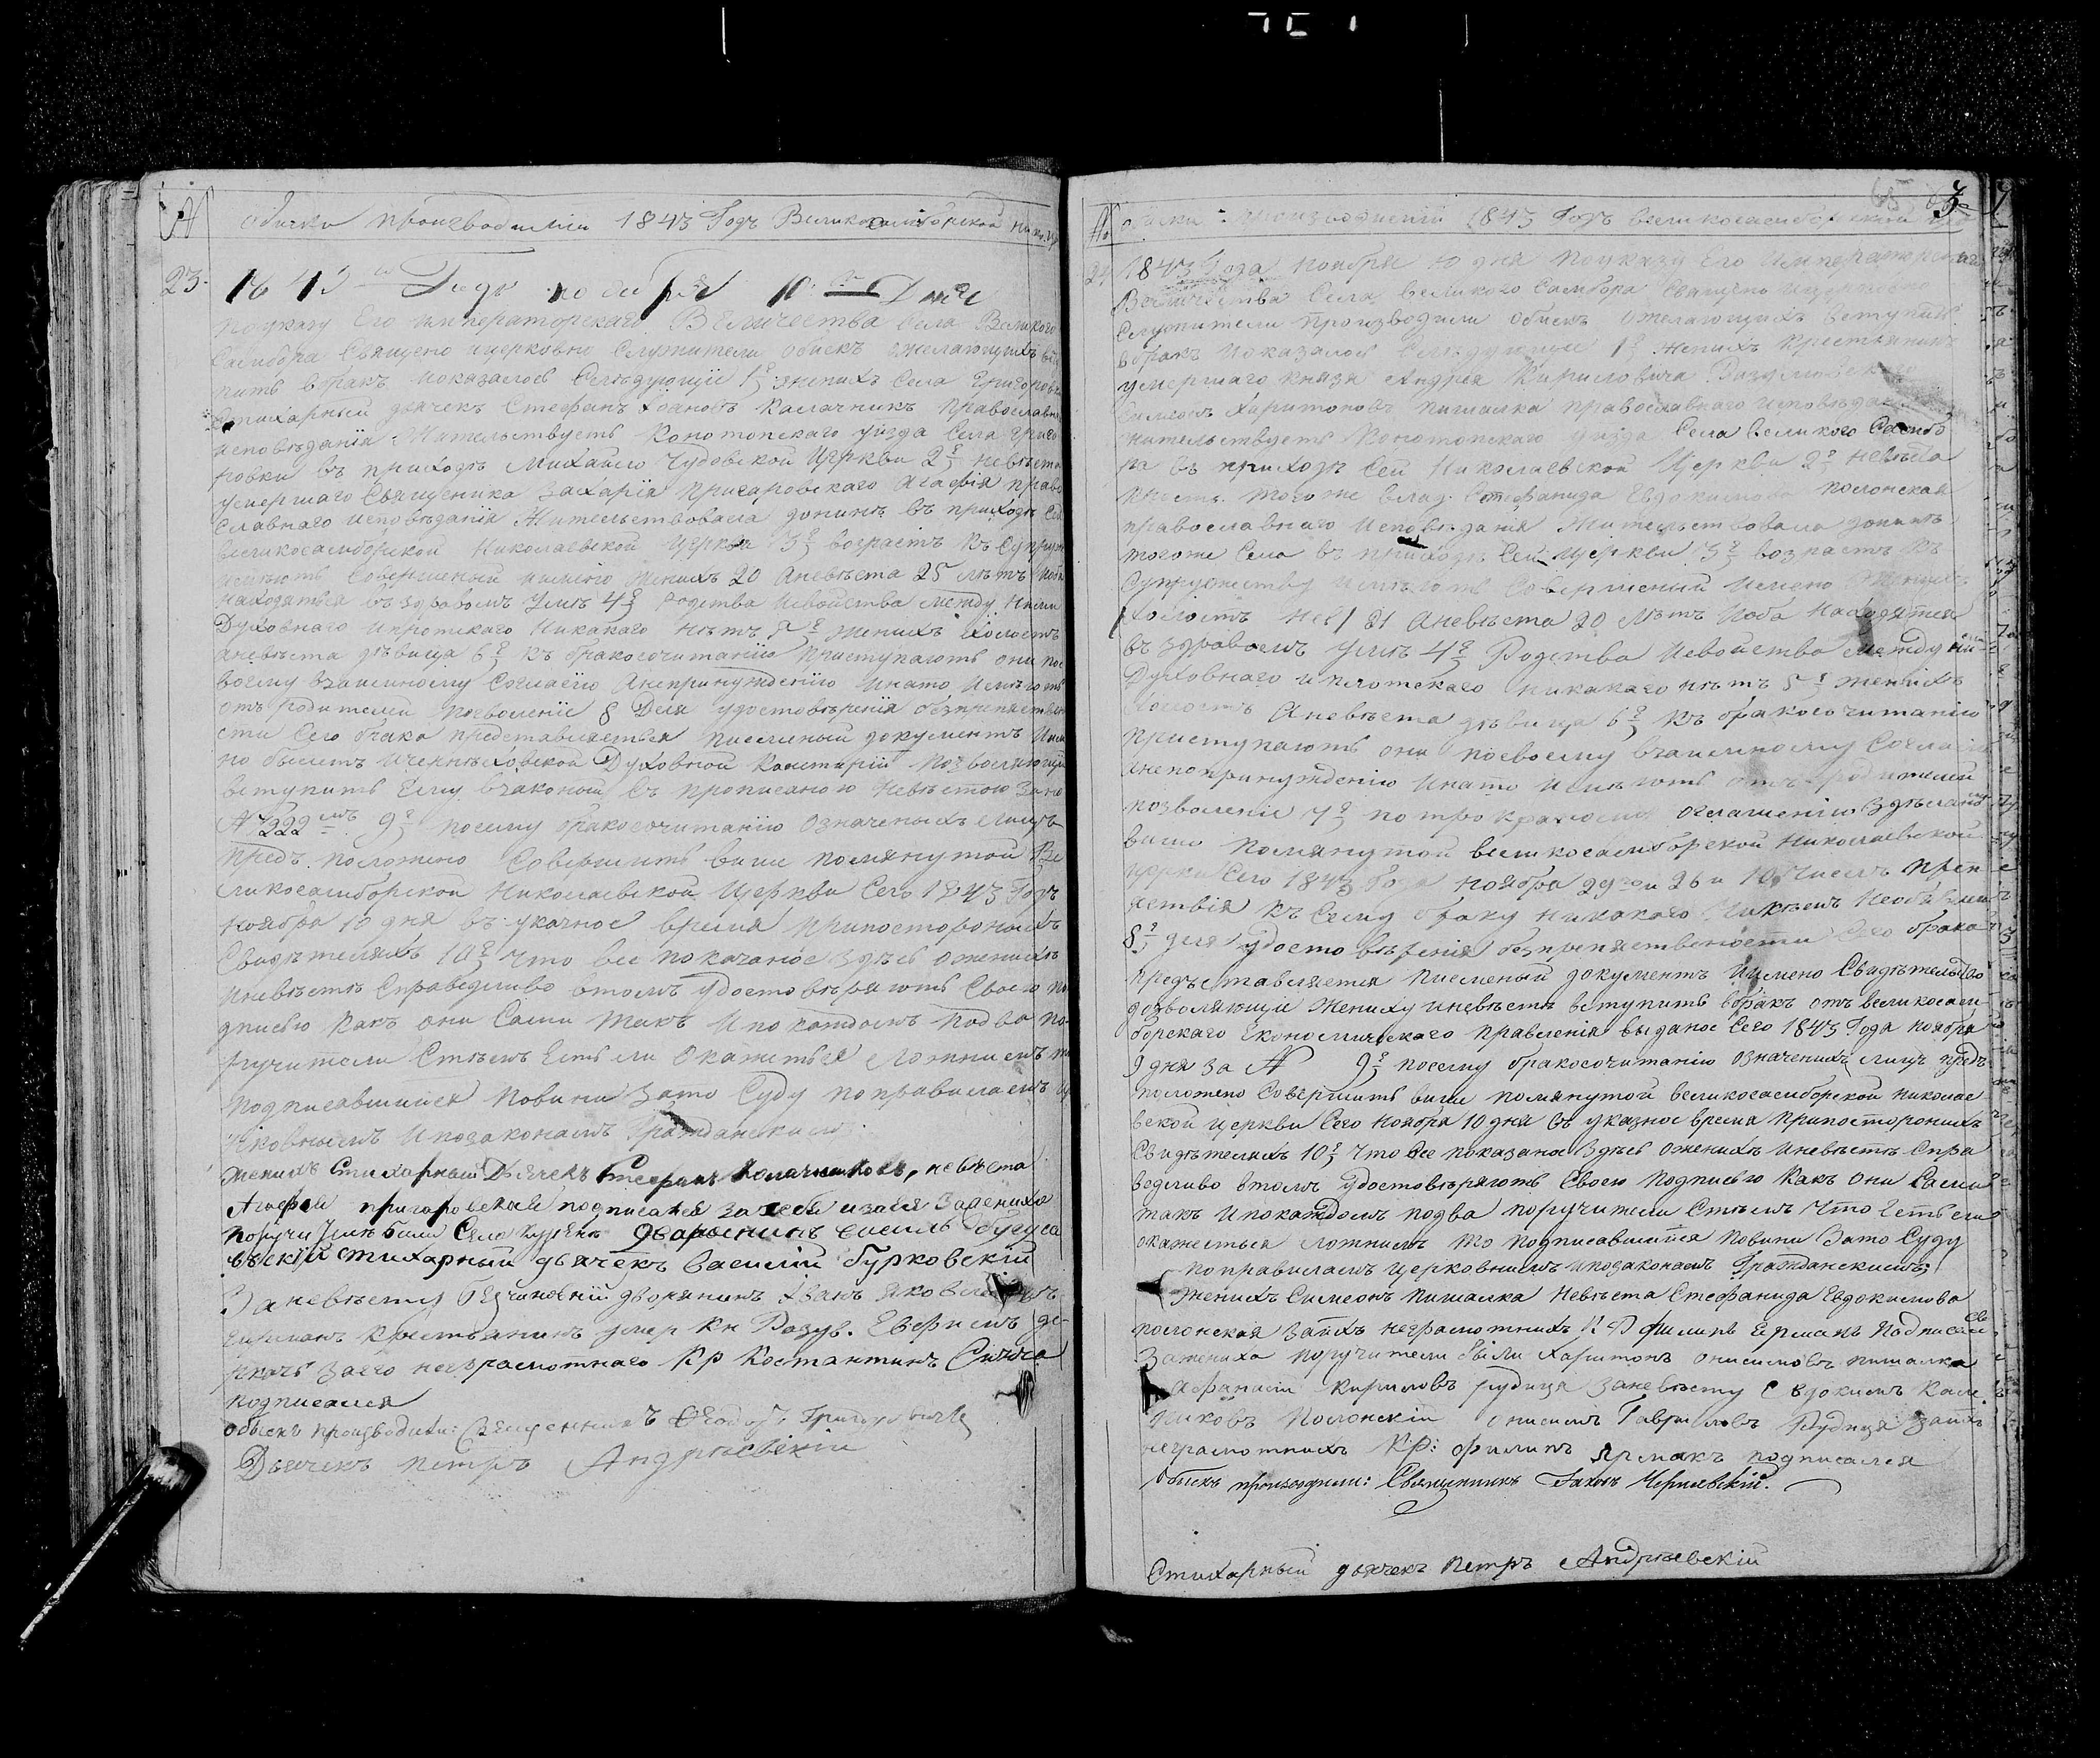 № Обиски произведеніи 1843 Годъ Великосамборской
23. 1843 Годъ ноября 10 Дня
По указу Его Императорскаго Величества Села Великого
Самбора Священо ицерковно Служители обискъ ожелающихъ
пить вбракъ иоказалось Следующіи 1е женихъ Села Григоровки
Стихарный дячекъ Стефанъ Іоановъ Калачникъ православнаго
исповѣданія Жительствуетъ Конотопскаго уѣзда Села Григо
ровки въ приходѣ Михайло Чудовской Церкви 2е невѣста
умершаго Священика Захарія Пригаровскаго Агафія право
славнаго исповѣданія Жительствовала донинѣ въ приходѣ Сей
великосамборской Николаевской Церкви 3е возрастъ къ Супруж
имѣютъ Совершеный имѣнно женихъ 20 аневѣста 25 лѣтъ иоба
находятся въ здравомъ Умѣ 4е Родства Исвойства между ними
Духовнаго иплотскаго никакаго нѣтъ 5е женихъ холостъ
аневѣста дѣвица 6е къ бракосочитанію приступаютъ они пос
воему взаимному Согласію Анепринужденію инато имѣютъ
отъ родителей позволеніе 8 Для удостовѣренія безпрепятствен
сти Сего брака представляется писменый документъ имѣ
но билетъ Ичерниговской Духовной Консисторіи позволяющій
вступить Ему взаконый съ прописаною невѣстою за но
№ 7222мъ 9е посему бракосочитанію означеныхъ лицъ
предъ положено Совершить више помянутой Ве
ликосамборской Николаевской Церкви Сего 1843 Годъ
Ноября 10 дня въ указное время припостороннихъ
Свидѣтеляхъ 10е Что все показаное здѣсь оженихѣ
иневѣстѣ Справедливо втомъ удостовѣряютъ Своею по
дписью какъ они Сами такъ ипокаждомъ подва по-
ручители Стѣмъ Естьли окажеться ложнимъ то
подписавшийся повини зато Суду поправиламъ це
рковнымъ ипозаконамъ Гражданскимъ
женихъ Стихарный Дячекъ Стефанъ Колачниковъ, невѣста
Агафія пригаровская подписался засебя изанея Зажениха
поручители били Села курѣнь дворянинъ василь Бугуса
вскій стихарный дьячекъ василій бурковскій
Заневѣсту безчиновній дворянинъ Іванъ Яковлевъ
Ермакъ крестьянинъ умер Кн Разув. Ефремъ де-
ркачъ заего неграмотнаго Кр Костантинъ Синча
подписался
обыскъ производили: Священникъ Феодоръ Григоровичъ
Дьячекъ петръ Андріевскій
№ обиски: произведеній 1843 Годъ великосамборской
24 1843 Года ноября 10 дня поуказу Его Императорскаго
Величества Села великого Самбора Священо ицерковно
Служители производили обискъ ожелающихъ вступить
вбракъ иоказалось Слѣдующіе 1е женихъ крестьянинъ
умершаго князя Андрея Кириловича Разумовскаго
Симеонъ Харитоновъ пишалка православнаго исповѣданія
жительствуетъ Конотопскаго уѣзда Села великого Самбо
ра въ приходѣ Сей Николаевской Церкви 2е невѣста
крестя. тогоже влад. Стефанида Евдокимова полонская
православнаго исповѣданія Жительствовала донинѣ
тогоже Села въ приходѣ Сей Церкви 3е возрастъ къ
Супружеству имѣютъ Совершеный имено женихъ
холостъ 21 аневѣста 20 лѣтъ иоба находятся
въ здравомъ умѣ 4е Родства исвойства между ни-
Духовнаго иплотскаго никакаго нѣтъ 5е женихъ
холостъ Аневѣста дѣвица 6е къ бракосочитанію
приступаютъ они посвоему взаимному Согласію
инепопринужденію инато имѣютъ отъ родителей
позволеніе 7е по трократному оглашенію Здѣланому
више помянутой великосамборской николаевской
церкви Сего 1843 Года Ноября 29го и 26 и 10 Чиселъ преп
ятствія къ Сему браку никакого никѣмъ необявлено
8е для удостовѣренія безпрепятствености Сего брака
предъставляется писменый документъ имено Свидѣтельство
дозволяющіе Жениху иневѣстѣ вступить вбракъ отъ великосам
борскаго Економическаго правленія выданое Сего 1843 Года ноября
9 дня за № 9е посему бракосочитанію означенихъ лицъ предъ
положено Совершить више помянутой великосамборской николае
вской церкви Сего ноября 10 дня въ указное время припостороннихъ
Свидѣтеляхъ 10е Что все показаное Здѣсь оженихѣ иневѣстѣ Спра
ведливо втомъ удостовѣряютъ Своею подписью какъ они Сами
такъ ипокаждомъ подва поручители Стѣмъ Что Естьли
окажеться ложнимъ то подписавшійся повини Зато Суду
поправиламъ церковнымъ ипозаконамъ Гражданскимъ;
женихъ Симеонъ пишалка невѣста Стефанида Евдокимова
полонская заніхъ неграмотнихъ К Р филипъ Ермакъ подписался
зажениха поручители били харитонъ онисимовъ пишалка
Афанасій кириловъ рудиця заневѣсту Евдокимъ
никовъ полонскій онисимъ Гавриловъ Рудиця заніхъ
неграмотнихъ КР: филипъ Ярмакъ подписался
обискъ производили: Священникъ Іаковъ Чернявскій.
Стихарный дьячекъ Петръ Андріевскій